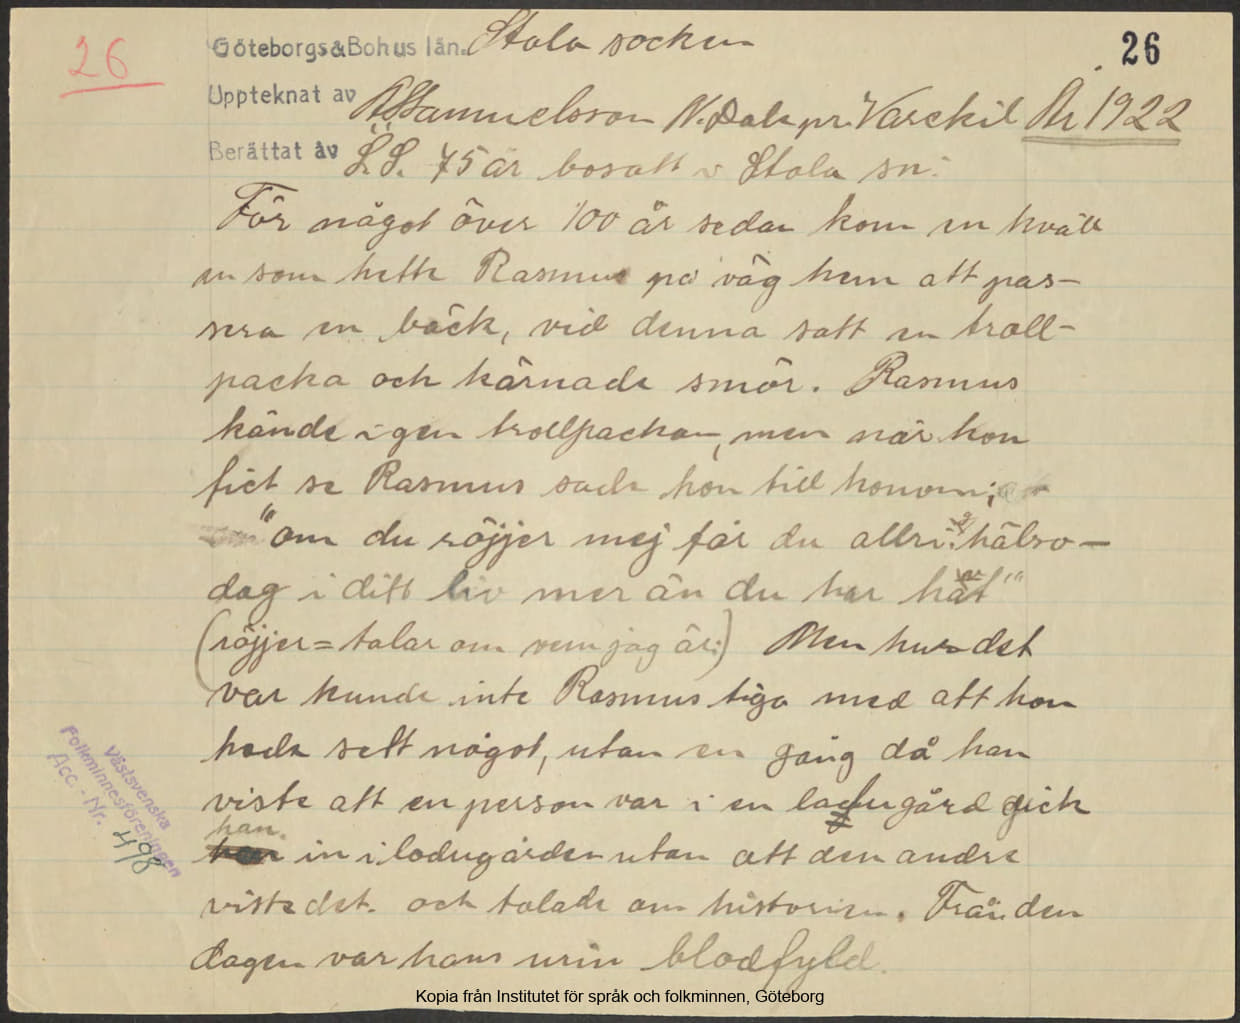 26
Göteborgs&Bohus län. Stala socken
26
Uppteknat av ASamuelsson N.Dale pr. Varekil År 1922
Berättat av L.S. 75 år bosatt i Stala sn.
För något över 100 år sedan kom en kväll
en som hette Rasmus på väg hem att pas-
sera en bäck, vid denna satt en troll-
packa och kärnade smör. Rasmus
kände igen trollpackan, men när hon
fick se Rasmus sade hon till honom;
"om du röjjer mej får du alldri hälso-
dag i ditt liv mer än du har hat"
(röjjer = talar om vem jag är.) Men hur det
var kunde inte Rasmus tiga med att hon
hade sett något, utan en gång då han
viste att en person var i en ladugård gick
han
in i ladugården utan att den andre
viste det. och talade om historien. Från den
dagen var hans urin blodfyld.
Västsvenska
Folkminnesföreningen
Acc.-Nr. 498
Kopia från Institutet för språk och folkminnen, Göteborg